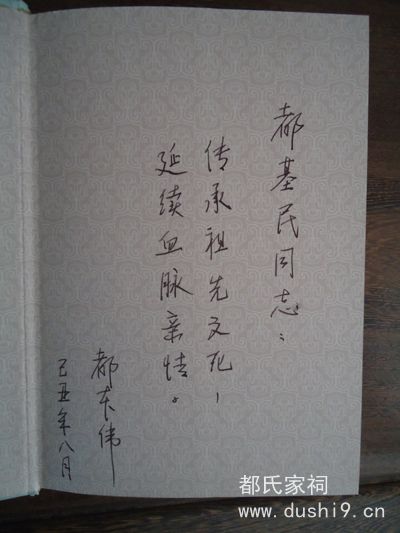 都基民同志：
传承祖先文化，
延续血脉亲情。
都本伟
己丑年八月
都氏家祠
www.dushi9.cn